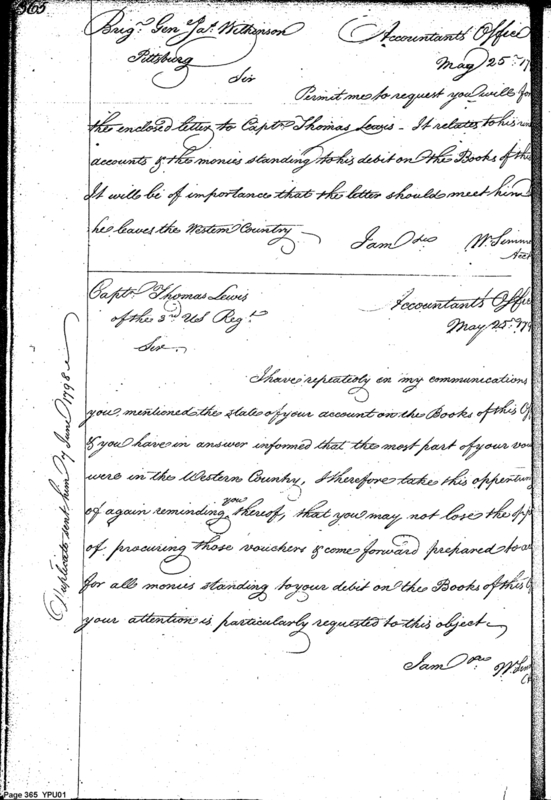 365
Brigr. Gen Jas. Wilkinson
Accountants Office
Pittsburg
May 25th. 179
Sir
Permit me to request you will for
the enclosed letter to Captn. Thomas Lewis - It relates to his
accounts & the monies standing to his debit on the Books of this
It will be of importance that the letter should meet him
he leaves the Western Country
I am &c
Wm Simmo
Acct
Captn. Thomas Lewis
Accountants Offic
of the 3rd US Regt.
May 25th. 179
Sir,
I have repeatedly in my communications
you mentioned the state of your account on the Books of this Of
& you have in answer informed that the most part of your vou
were in the Western Country, I therefore take this opportun
of again reminding you thereof, that you may not lose the opp
of procuring those vouchers & come forward prepared to ac
for all monies standing to your debit on the Books of this O
your attention is particularly requested to this object
I am &c
Wm Sim
Duplicate sent him 7 June 1798
Page 365 YPU01